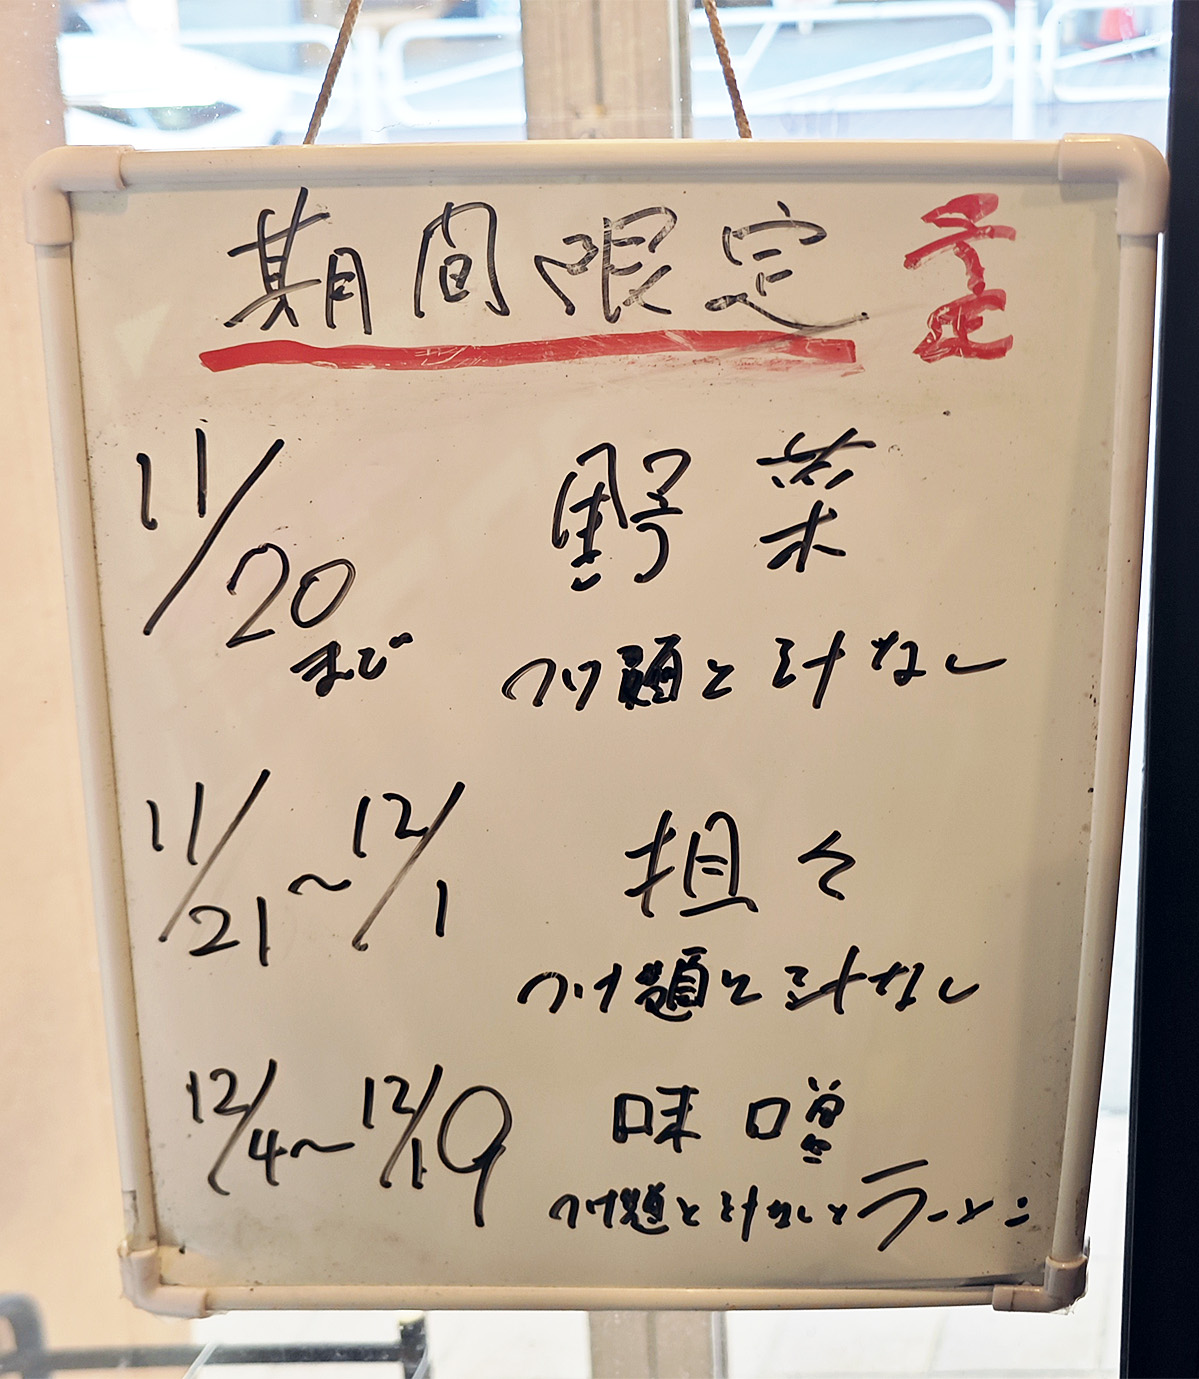 期間限定 予定
11/20まで 野菜
つけ麺と汁なし
11/21～12/1 担々
つけ麺と汁なし
12/4～12/19 味噌
つけ麺と汁なしとラーメン